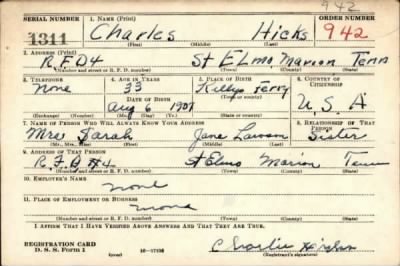 942
SERIAL NUMBER 1. NAME (Print) ORDER NUMBER
1311 Charles Hicks 942
(First) (Middle) (Last)
2. ADDRESS (Print)
R.F.D4 St Elmo, Marion Tenn
(Number and street or R. F. D. number) (Town) (County) (State)
3. TELEPHONE 4. AGE IN YEARS 5. PLACE OF BIRTH 6. COUNTRY OF CITIZENSHIP
None 33 Kellys Ferry
DATE OF BIRTH (Town or county)
Aug 6 1907 U.S.A
(Mo.) (Day) (Yr.) (State or country)
7. NAME OF PERSON WHO WILL ALWAYS KNOW YOUR ADDRESS 8. RELATIONSHIP OF THAT PERSON
Mrs Sarah Jane Lawson Sister
(Mr., Mrs., Miss) (First) (Middle) (Last)
9. ADDRESS OF THAT PERSON
R.F.D #4 St Elmo Marion Tenn
(Number and street or R. F. D. number) (Town) (County) (State)
10. EMPLOYER'S NAME
none
11. PLACE OF EMPLOYMENT OR BUSINESS
none
(Number and street or R. F. D. number) (Town) (County) (State)
I AFFIRM THAT I HAVE VERIFIED ABOVE ANSWERS AND THAT THEY ARE TRUE.
REGISTRATION CARD
D. S. S. Form 1 (over) Charlie
(Registrant's signature)